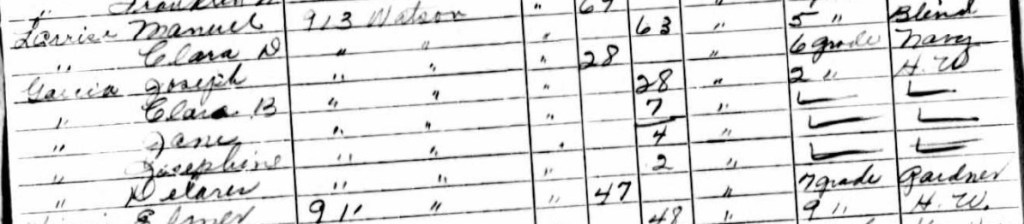 Manuel 913 Watson " 67
" Clara D " " " 63 " 5 " Blind
Garcia Joseph " " " 28 " 6 grade Navy
" Clara B " " " 28 " 2 " H.W
" Jane " " " 7 "
" Josephine " " " 4 "
" Delores " " " 2 "
Elmer 911 " " 47 " 7 grade Gardner
48 " 9 " H.W.